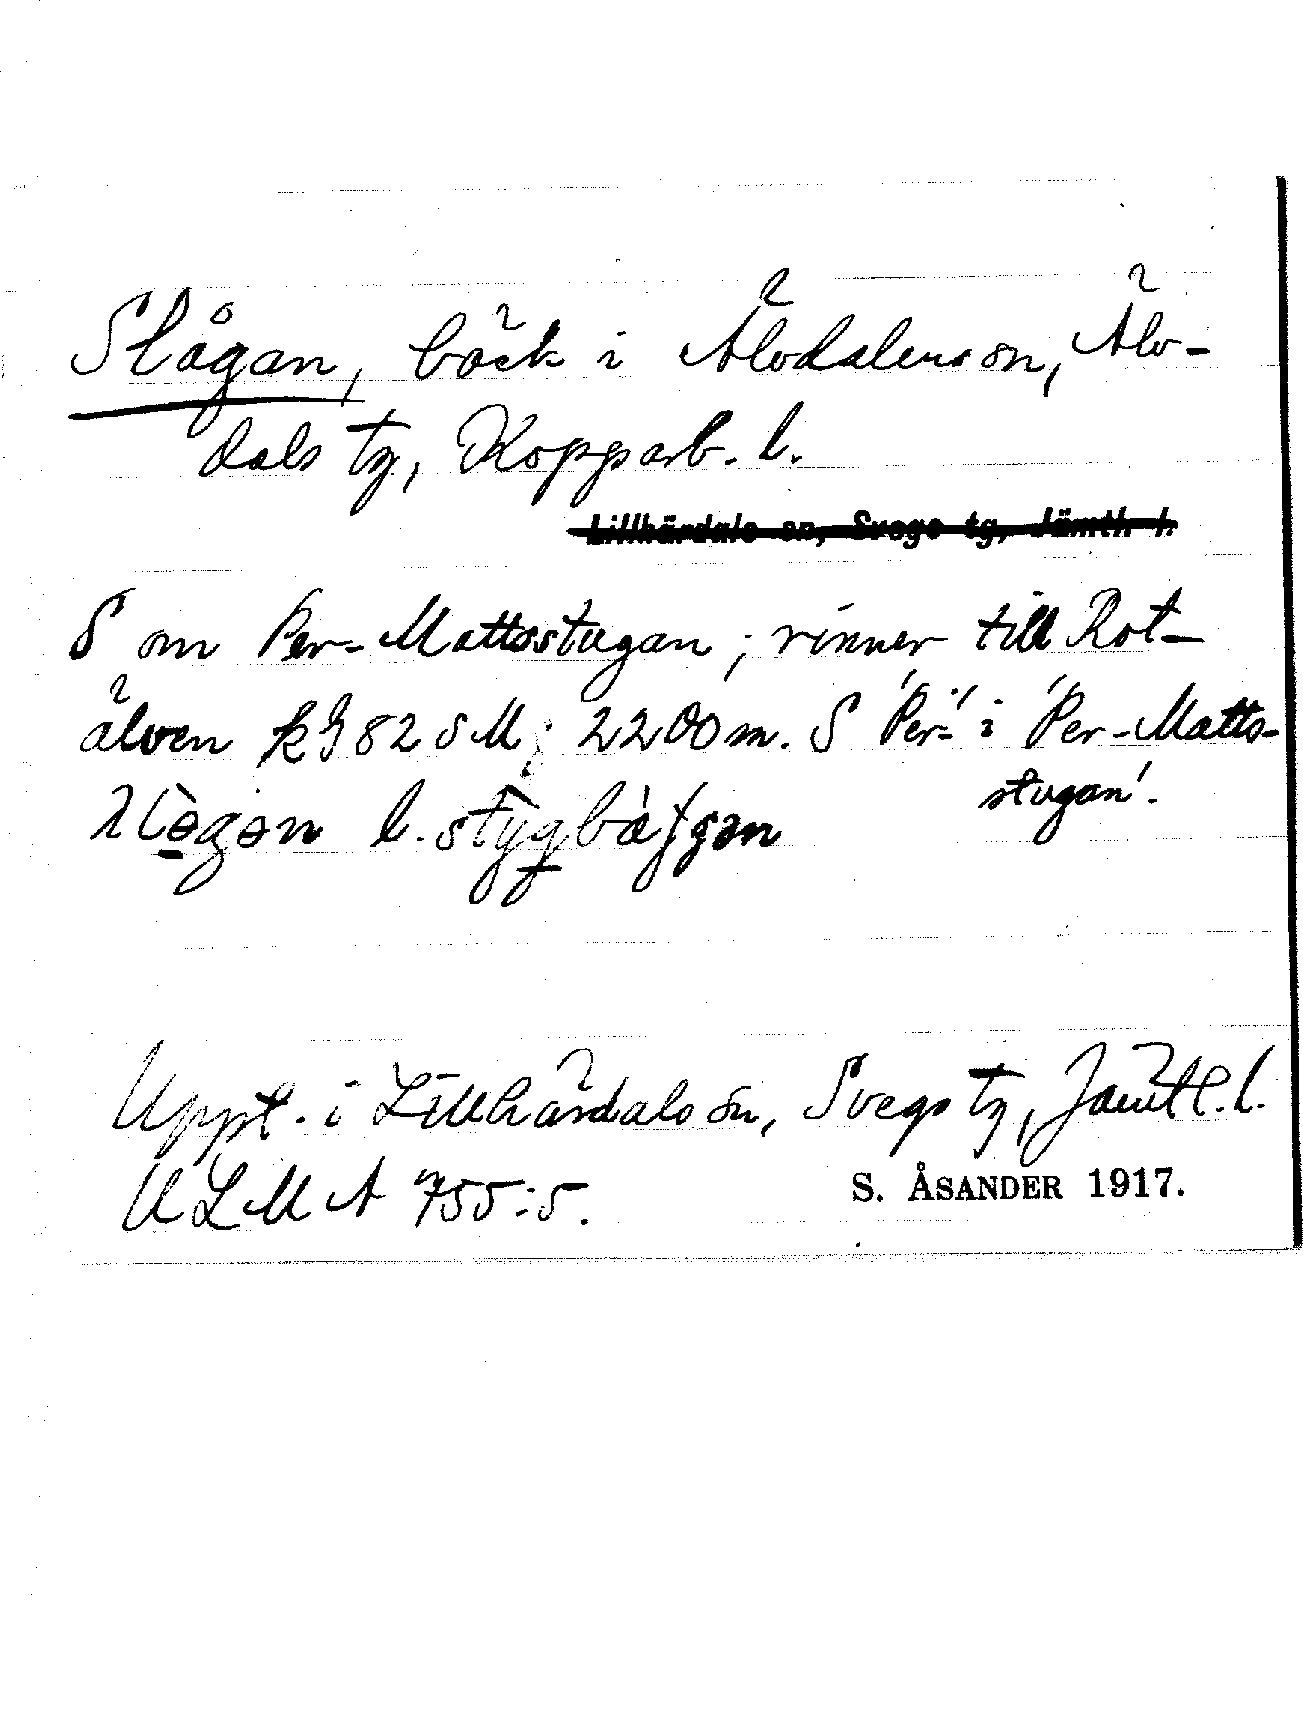 Slågan, bäck i Älvdalens sn, Älv-
dals tg, Kopparb. l.
Lillhärdals sn, Svegs tg, Jämtl. l.
S om Per-Mattsstugan; rinner till Rot-
älven k982SM; 2200m. S 'Per-' i 'Per-Matts-
stugan'.
l. stỳgbà
Uppt. i Lillhärdals sn, Svegs tg, Jämtl. l.
ULMA 755:5.
S. ÅSANDER 1917.